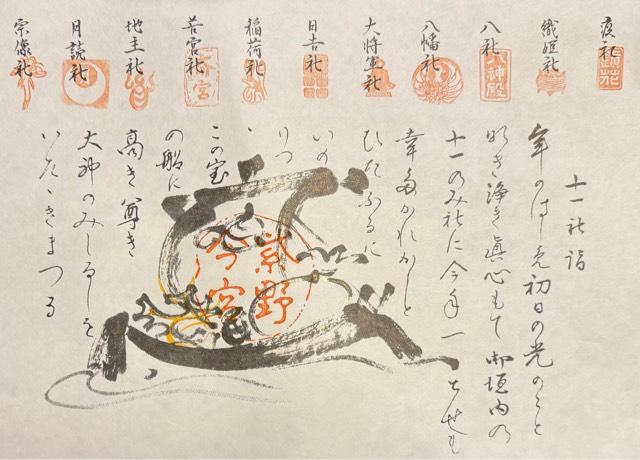 疫社
鎮花
織姫社
八社
八神殿
八幡社
大将軍社
日吉社
稲荷社
若宮社
地主社
月読社
宗像社
十一社詣
年のはしめ初日の光のこと
明き浄き眞心もて御垣内の
十一のみ社に今年一とせも
幸多かれかしと
ひたふるに
いの
りつ
ゝ
この宝
の船に
高き尊き
大神のみしるしを
いたゝきまつる
紫野
今宮